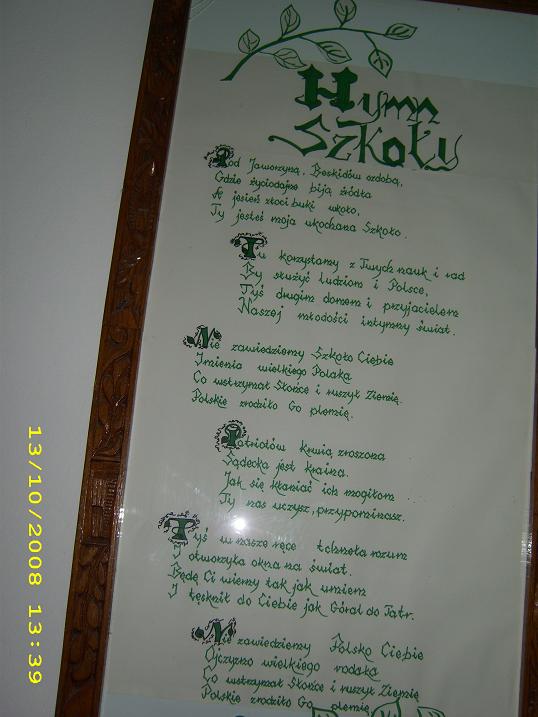 Hymn
Szkoły
Pod Jaworzyną, Beskidów ozdobą,
Gdzie życiodajne biją źródła
A jesień złoci buki wkoło,
Ty jesteś moja ukochana Szkoło.
Tu korzystamy z Twych nauk i rad
By służyć ludziom i Polsce,
Tyś drugim domem i przyjacielem
Naszej młodości intymny świat.
Nie zawiedziemy Szkoło Ciebie
Imienia wielkiego Polaka
Co wstrzymał Słońce i ruszył Ziemię.
Polskie zrodziło Go plemię.
Patriotów krwią zroszona
Sądecka jest kraina.
Jak się kłaniać ich mogiłom
Ty nas uczysz, przypominasz.
Tyś w nasze ręce tchnęła rozum
I otworzyła okna na świat.
Będę Ci wierny tak jak umiem
I tęsknił do Ciebie jak Góral do Tatr.
Nie zawiedziemy Polsko Ciebie
Ojczyzno wielkiego rodaka
Co wstrzymał Słońce i ruszył Ziemię
Polskie zrodziło Go plemię
13/10/2008 13:39